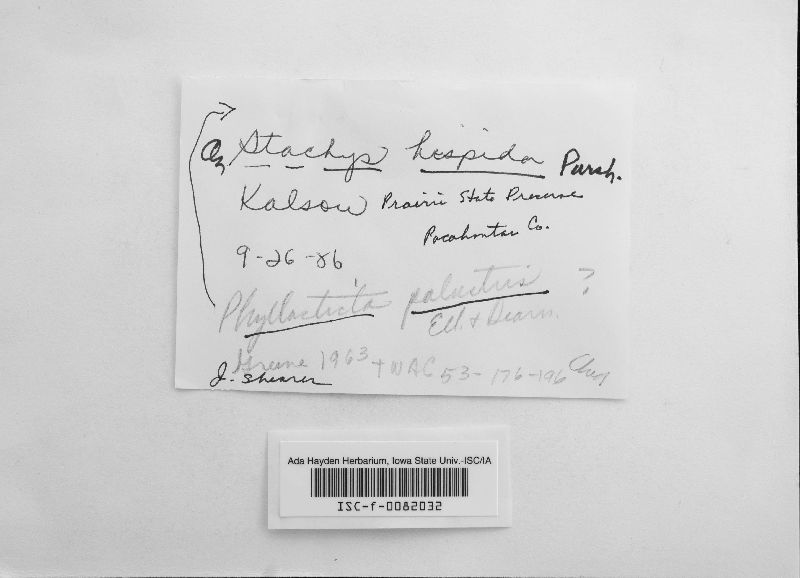 On Stachys hispida Pursh.
Kalsow Prairie State Preserve
Pocahontas Co.
9-26-86
Phyllosticta palustris ?
Ell. + Dearn.
Greene 1963 + WAC 53-176-196
J. Shearer
Ada Hayden Herbarium, Iowa State Univ.-ISC/IA
ISC-f-0082032